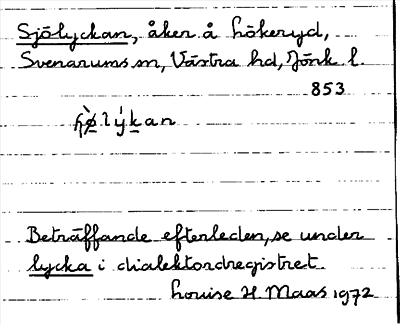 Sjölyckan, åker å Hökeryd,
Svenarums sn, Västra hd, Jönk. l.
853
Beträffande efterleden, se under
lycka i dialektordregistret.
Louise H. Maas 1972